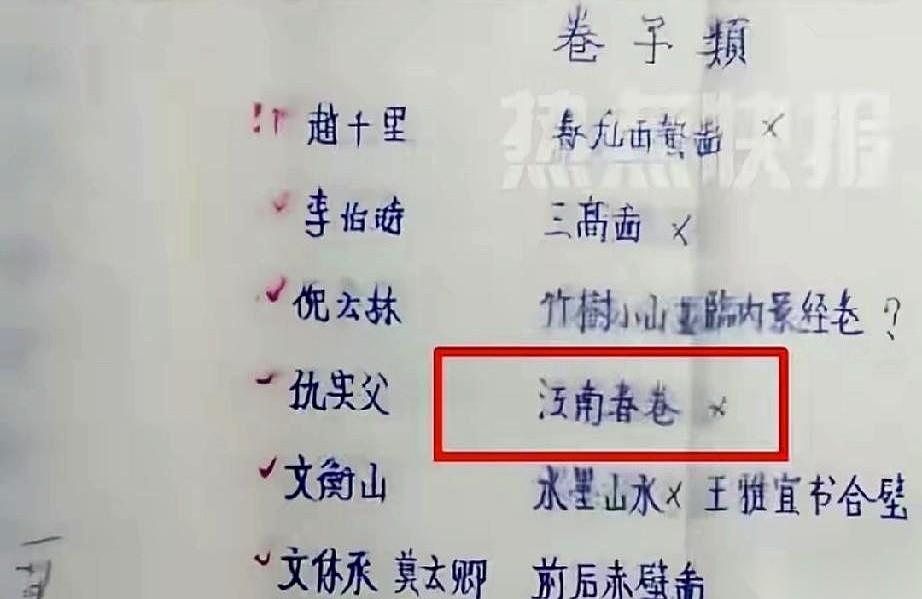 卷子類
热点快报
趙千里 春九西巖啚 ×
李伯時 三高啚 ×
倪云林 竹樹小山 臨内景经卷 ?
仇实父 江南春卷 ×
文衡山 水墨山水× 王雅宜书合壁
文休承 莫云卿 前后赤壁啚